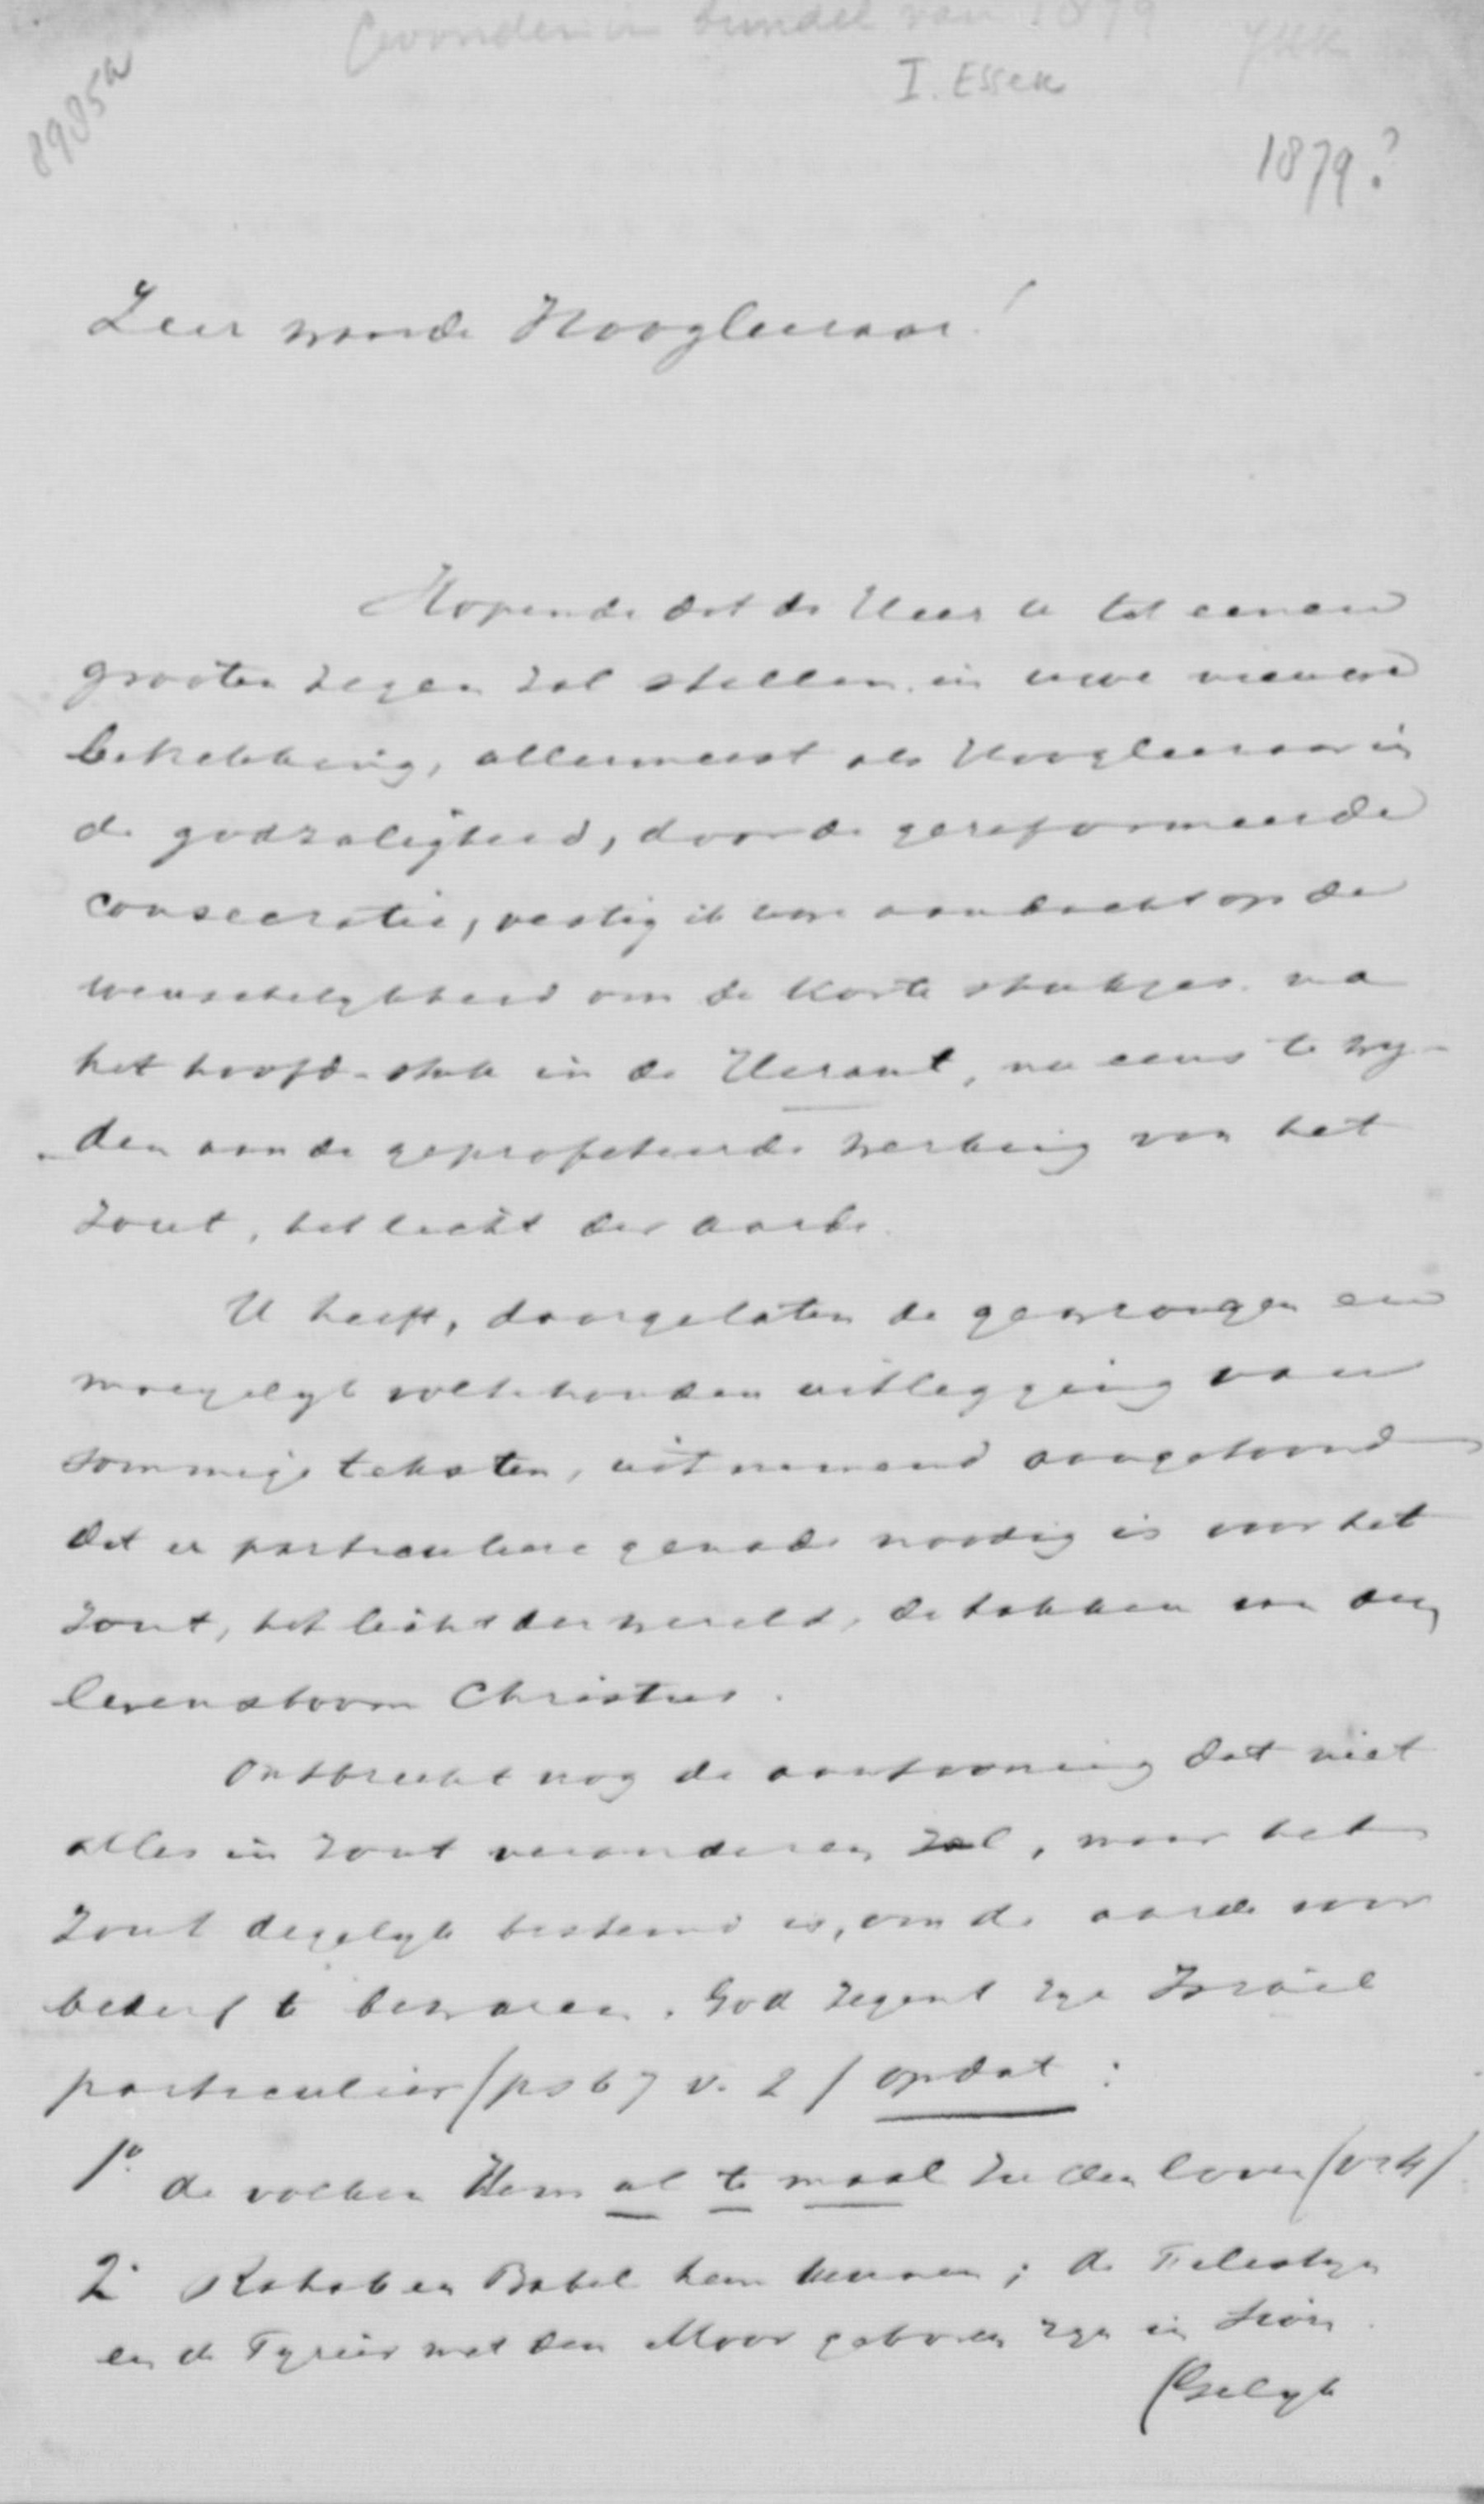 Gevonden in bundel van 1879
I. Esser
8985a
1879?
Zeer waarde Hoogleeraar!
Hopende dat de Heer U tot eenen
grooten zegen zal stellen in uwe nieuwe
betrekking, allermeest als Hoogleeraar in
de godzaligheid, door de gereformeerde
consecratie, vestig ik uwe aandacht op de
wenschelykheid om de korte stukjes na
het hoofd-stuk in de Heraut, nu eens te wy-
den aan de geprofeteerde werking van het
zout, het licht der aarde.
U heeft, daargelaten de gewrongen en
moeyelyk vol te houden uitlegging van
sommige teksten, uitnemend aangetoond
dat er particuliere genade noodig is voor het
zout, het licht der wereld, de takken van den
levensboom Christus.
Ontbreekt nog de aantooning dat niet
alles in zout veranderen zal, maar het
zout degelyk bestemd is, om de aarde voor
bederf te bewaren. God zegent zyn Israël
particulier (ps 67 v. 2) opdat :
1o de volken Hem al te maal zullen loven (vs 4)
2o Rahab en Babel hem kennen; de Filistyn
en de Tyriër met den Moor geboren zyn in Sion.
(Gelyk